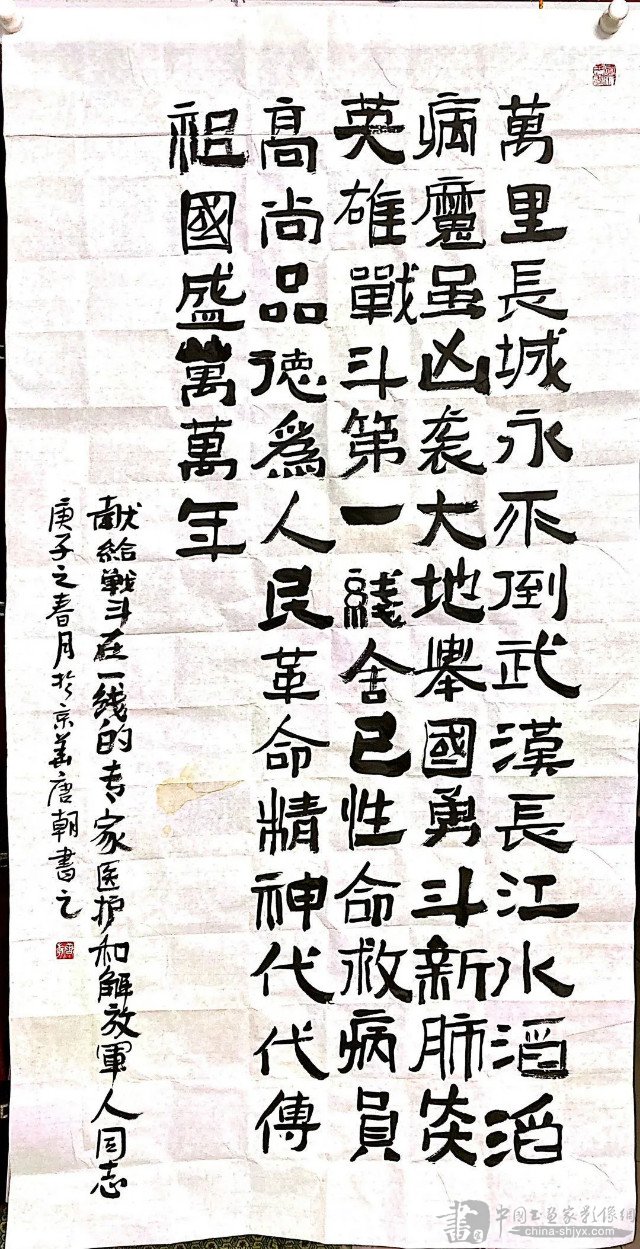 萬里長城永不倒武漢長江水滔滔
病魔虽凶袭大地舉國勇斗新肺炎
英雄戰斗第一綫舍己性命救病員
高尚品德為人民革命精神代代傳
祖國盛萬萬年
献给战斗在一线的专家医护和解放軍人同志
庚子之春月於京善唐朝書之
中国书画家影像網
china-shjyx.com